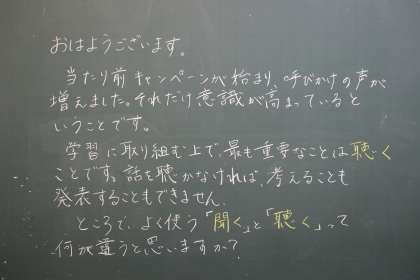 おはようございます。
当たり前キャンペーンが始まり、呼びかけの声が
増えました。それだけ意識が高まっていると
いうことです。
学習に取り組む上で、最も重要なことは聴く
ことです。話を聴かなければ、考えることも
発表することもできません。
ところで、よく使う「聞く」と「聴く」って
何が違うと思いますか?